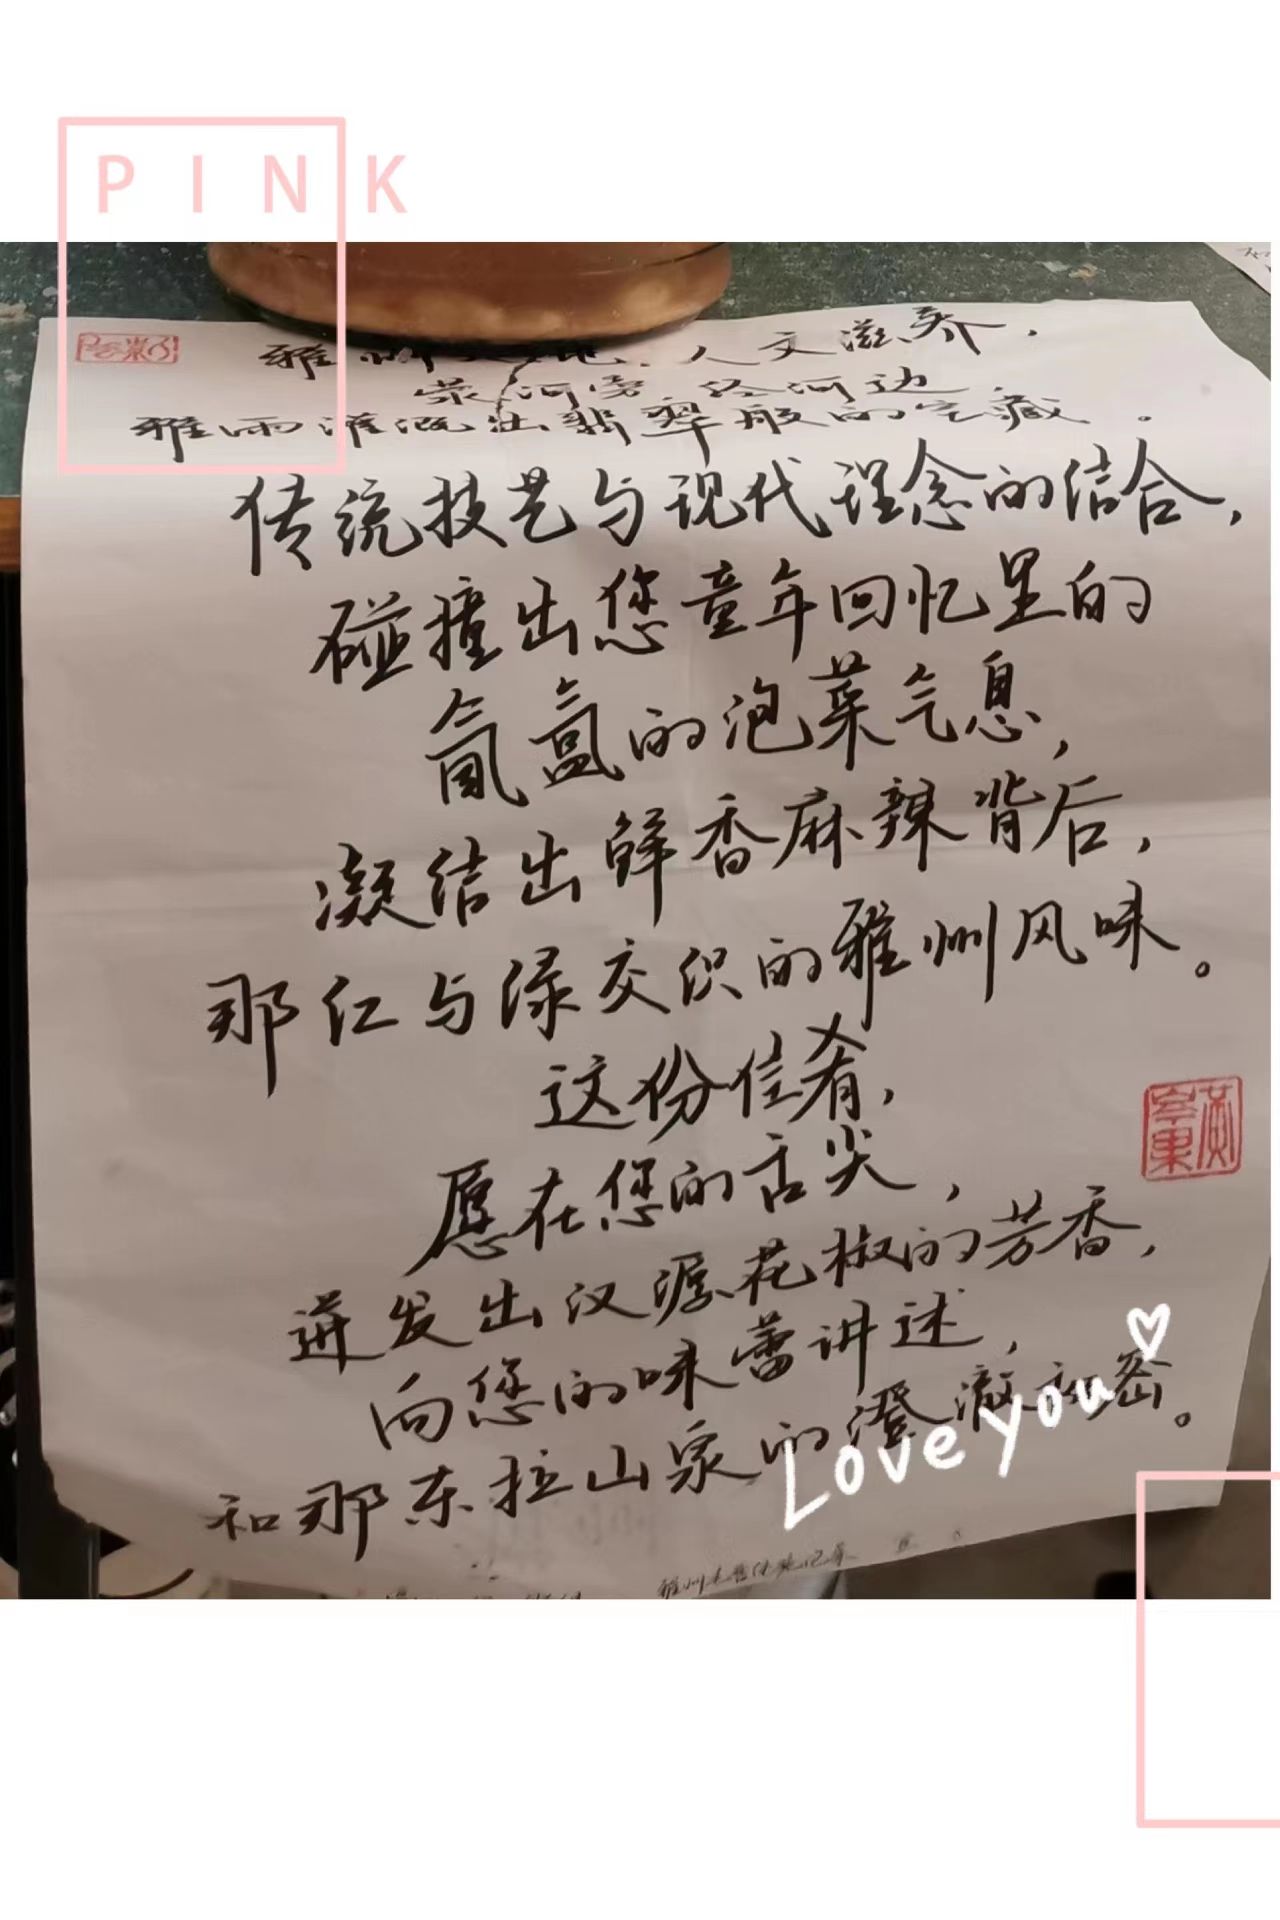 PINK
雅州 人文滋养，
荥河旁 经河边
雅雨灌溉出翡翠般的宝藏。
传统技艺与现代理念的结合，
碰撞出您童年回忆里的
氤氲的泡菜气息，
凝结出鲜香麻辣背后，
那红与绿交织的雅州风味。
这份佳肴，
愿在您的舌尖，
迸发出汉源花椒的芳香，
向您的味蕾讲述，
和那东拉山泉的澄澈秘密。
Love you